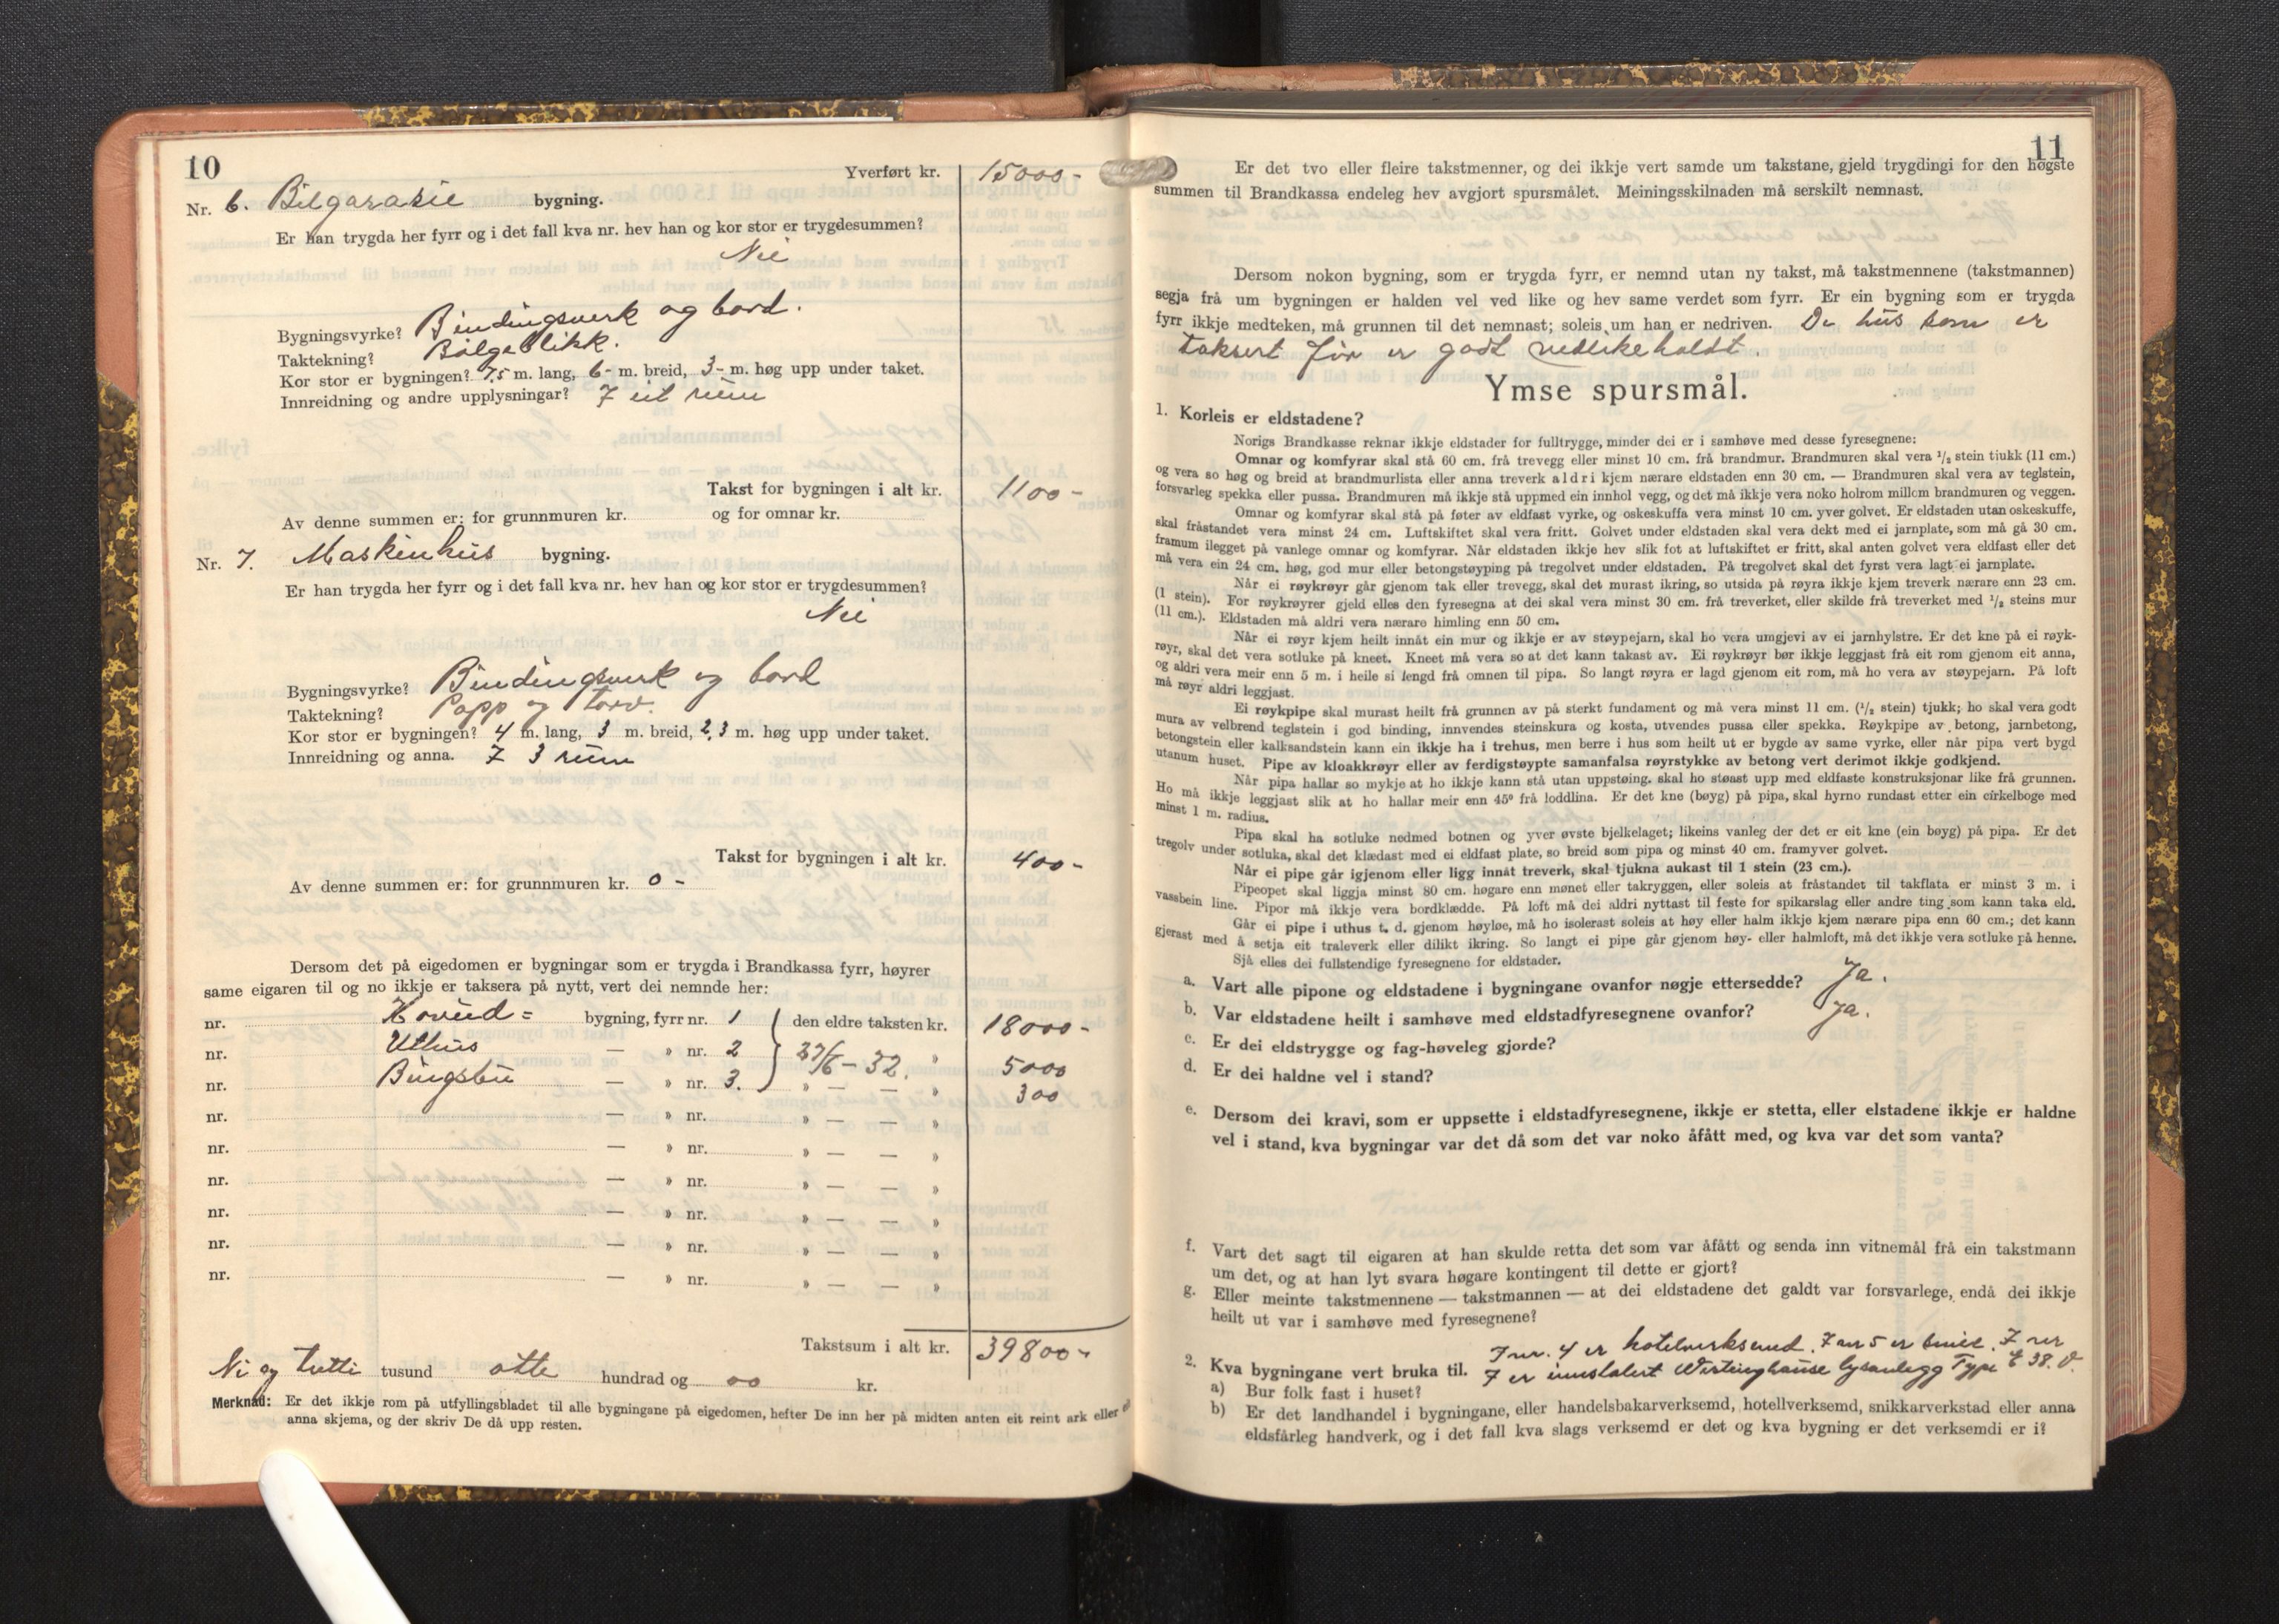 10
Yverført kr. 15000-
Nr. 6. Bilgarasie bygning.
Er han trygda her fyrr og i det fall kva nr. hev han og kor stor er trygdesummen?
Nei
Bygningsvyrke? Bindingsverk og bord.
Taktekning? Bølgeblikk.
Kor stor er bygningen? 7,5 m. lang, 6- m. breid, 3- m. høg upp under taket.
Innreidning og andre upplysningar? I eit rum
Takst for bygningen i alt kr. 1100-
Av denne summen er: for grunnmuren kr. og for omnar kr.
Nr. 7. Maskinhus bygning.
Er han trygda her fyrr og i det fall kva nr. hev han og kor stor er trygdesummen?
Nei
Bygningsvyrke? Bindingsverk og bord
Taktekning? Papp og torv.
Kor stor er bygningen? 4 m. lang, 3 m. breid, 2,3 m. høg upp under taket.
Innreidning og anna. I 3 rum
Takst for bygningen i alt kr. 400-
Av denne summen er: for grunnmuren kr. 0-
Dersom det på eigedomen er bygningar som er trygda i Brandkassa fyrr, høyrer
same eigaren til og no ikkje er taksera på nytt, vert dei nemnde her:
nr. Hovud= bygning, fyrr nr. 1 den eldre taksten kr. 18000-
nr. Uthus — » nr. 2 27/6-32. » 5000
nr. — » nr. 3. » — — » 300
nr. — » nr. » — — »
nr. — » nr. » — — »
nr. — » nr. » — — »
nr. — » nr. » — — »
nr. — » nr. » — — »
nr. — » nr. » — — »
Takstsum i alt kr. 39800-
Ni og tretti tusund otte hundrad og 00 kr.
Merknad: Er det ikkje rom på utfyllingsbladet til alle bygningane på eigedomen, hefter De inn her på midten anten eit reint ark eller
anna skjema, og der skriv De då upp resten.
11
Er det tvo eller fleire takstmenner, og dei ikkje vert samde um takstane, gjeld trygdingi for den høgste
summen til Brandkassa endeleg hev avgjort spursmålet. Meiningsskilnaden må serskilt nemnast.
Dersom nokon bygning, som er trygda fyrr, er nemnd utan ny takst, må takstmennene (takstmannen)
segja frå um bygningen er halden vel ved like og hev same verdet som fyrr. Er ein bygning som er trygda
fyrr ikkje medteken, må grunnen til det nemnast; soleis um han er nedriven. De hus som er
taksert før er godt vedlikeholdt.
Ymse spursmål.
1. Korleis er eldstadene?
Norigs Brandkasse reknar ikkje eldstader for fulltrygge, minder dei er i samhøve med desse fyresegnene:
Omnar og komfyrar skal stå 60 cm. frå trevegg eller minst 10 cm. frå brandmur. Brandmuren skal vera 1/2 stein tjukk (11 cm.)
og vera so høg og breid at brandmurlista eller anna treverk aldri kjem nærare eldstaden enn 30 cm. — Brandmuren skal vera av teglstein,
forsvarleg spekka eller pussa. Brandmuren må ikkje stå uppmed ein innhol vegg, og det må ikkje vera noko holrom millom brandmuren og veggen.
Omnar og komfyrar skal stå på føter av eldfast vyrke, og oskeskuffa vera minst 10 cm. yver golvet. Er eldstaden utan oskeskuffe,
skal fråstandet vera minst 24 cm. Luftskiftet skal vera fritt. Golvet under eldstaden skal vera dekt med ei jarnplate, som må gå 30 cm.
framum ilegget på vanlege omnar og komfyrar. Når eldstaden ikkje hev slik fot at luftskiftet er fritt, skal anten golvet vera eldfast eller det
må vera ein 24 cm. høg, god mur eller betongstøyping på tregolvet under eldstaden. På tregolvet skal det fyrst vera lagt ei jarnplate.
Når ei røykrøyr går gjenom tak eller trevegg, skal det murast ikring, so utsida på røyra ikkje kjem treverk nærare enn 23 cm.
(1 stein). For røykrøyrer gjeld elles den fyresegna at dei skal vera minst 30 cm. frå treverket, eller skilde frå treverket med 1/2 steins mur
(11 cm.). Eldstaden må aldri vera nærare himling enn 50 cm.
Når ei røyr kjem heilt innåt ein mur og ikkje er av støypejarn, skal ho vera umgjevi av ei jarnhylstre. Er det kne på ei røyk-
røyr, skal det vera sotluke på kneet. Kneet må vera so at det kann takast av. Ei røykrøyr bør ikkje leggjast frå eit rom gjenom eit anna,
og aldri vera meir enn 5 m. i heile si lengd frå omnen til pipa. So langt røyra er lagd gjenom eit rom, må ho vera av støypejarn. På loft
må røyr aldri leggjast.
Ei røykpipe skal murast heilt frå grunnen av på sterkt fundament og må vera minst 11 cm. (1/2 stein) tjukk; ho skal vera godt
mura av velbrend teglstein i god binding, innvendes steinskura og kosta, utvendes pussa eller spekka. Røykpipe av betong, jarnbetong,
betongstein eller kalksandstein kann ein ikkje ha i trehus, men berre i hus som heilt ut er bygde av same vyrke, eller når pipa vert bygd
utanum huset. Pipe av kloakkrøyr eller av ferdigstøypte samanfalsa røyrstykke av betong vert derimot ikkje godkjend.
Når pipa hallar so mykje at ho ikkje kann stå utan uppstøing, skal ho støast upp med eldfaste konstruksjonar like frå grunnen.
Ho må ikkje leggjast slik at ho hallar meir enn 45º frå loddlina. Er det kne (bøyg) på pipa, skal hyrno rundast etter ein cirkelboge med
minst 1 m. radius.
Pipa skal ha sotluke nedmed botnen og yver øvste bjelkelaget; likeins vanleg der det er eit kne (ein bøyg) på pipa. Er det
tregolv under sotluka, skal det klædast med ei eldfast plate, so breid som pipa og minst 40 cm. framyver golvet.
Når ei pipe går igjenom eller ligg innåt treverk, skal tjukna aukast til 1 stein (23 cm.).
Pipeopet skal liggja minst 80 cm. høgare enn mønet eller takryggen, eller soleis at fråstandet til takflata er minst 3 m. i
vassbein line. Pipor må ikkje vera bordklædde. På loft må dei aldri nyttast til feste for spikarslag eller andre ting som kann taka eld.
Går ei pipe i uthus t. d. gjenom høyløe, må ho isolerast soleis at høy eller halm ikkje kjem nærare pipa enn 60 cm.; det kann
gjerast med å setja eit traleverk eller dilikt ikring. So langt ei pipe går gjenom høy- eller halmloft, må det ikkje vera sotluke på henne.
Sjå elles dei fullstendige fyresegnene for eldstader.
a. Vart alle pipone og eldstadene i bygningane ovanfor nøgje ettersedde? Ja.
b. Var eldstadene heilt i samhøve med eldstadfyresegnene ovanfor? Ja.
c. Er dei eldstrygge og fag-høveleg gjorde?
d. Er dei haldne vel i stand?
e. Dersom dei kravi, som er uppsette i eldstadfyresegnene, ikkje er stetta, eller elstadene ikkje er haldne
vel i stand, kva bygningar var det då som det var noko åfått med, og kva var det som vanta?
f. Vart det sagt til eigaren at han skulde retta det som var åfått og senda inn vitnemål frå ein takstmann
um det, og at han lyt svara høgare kontingent til dette er gjort?
g. Eller meinte takstmennene — takstmannen — at dei eldstadene det galdt var forsvarlege, endå dei ikkje
heilt ut var i samhøve med fyresegnene?
I nr. 4 er hotelverksemd. I nr 5 er smie. I nr
2. Kva bygningane vert bruka til. 7 er innstalert lysanlegg Type
a) Bur folk fast i huset?
b) Er det landhandel i bygningane, eller handelsbakarverksemd, hotellverksemd, snikkarverkstad eller anna
eldsfårleg handverk, og i det fall kva slags verksemd er det og kva bygning er det verksemdi er i?